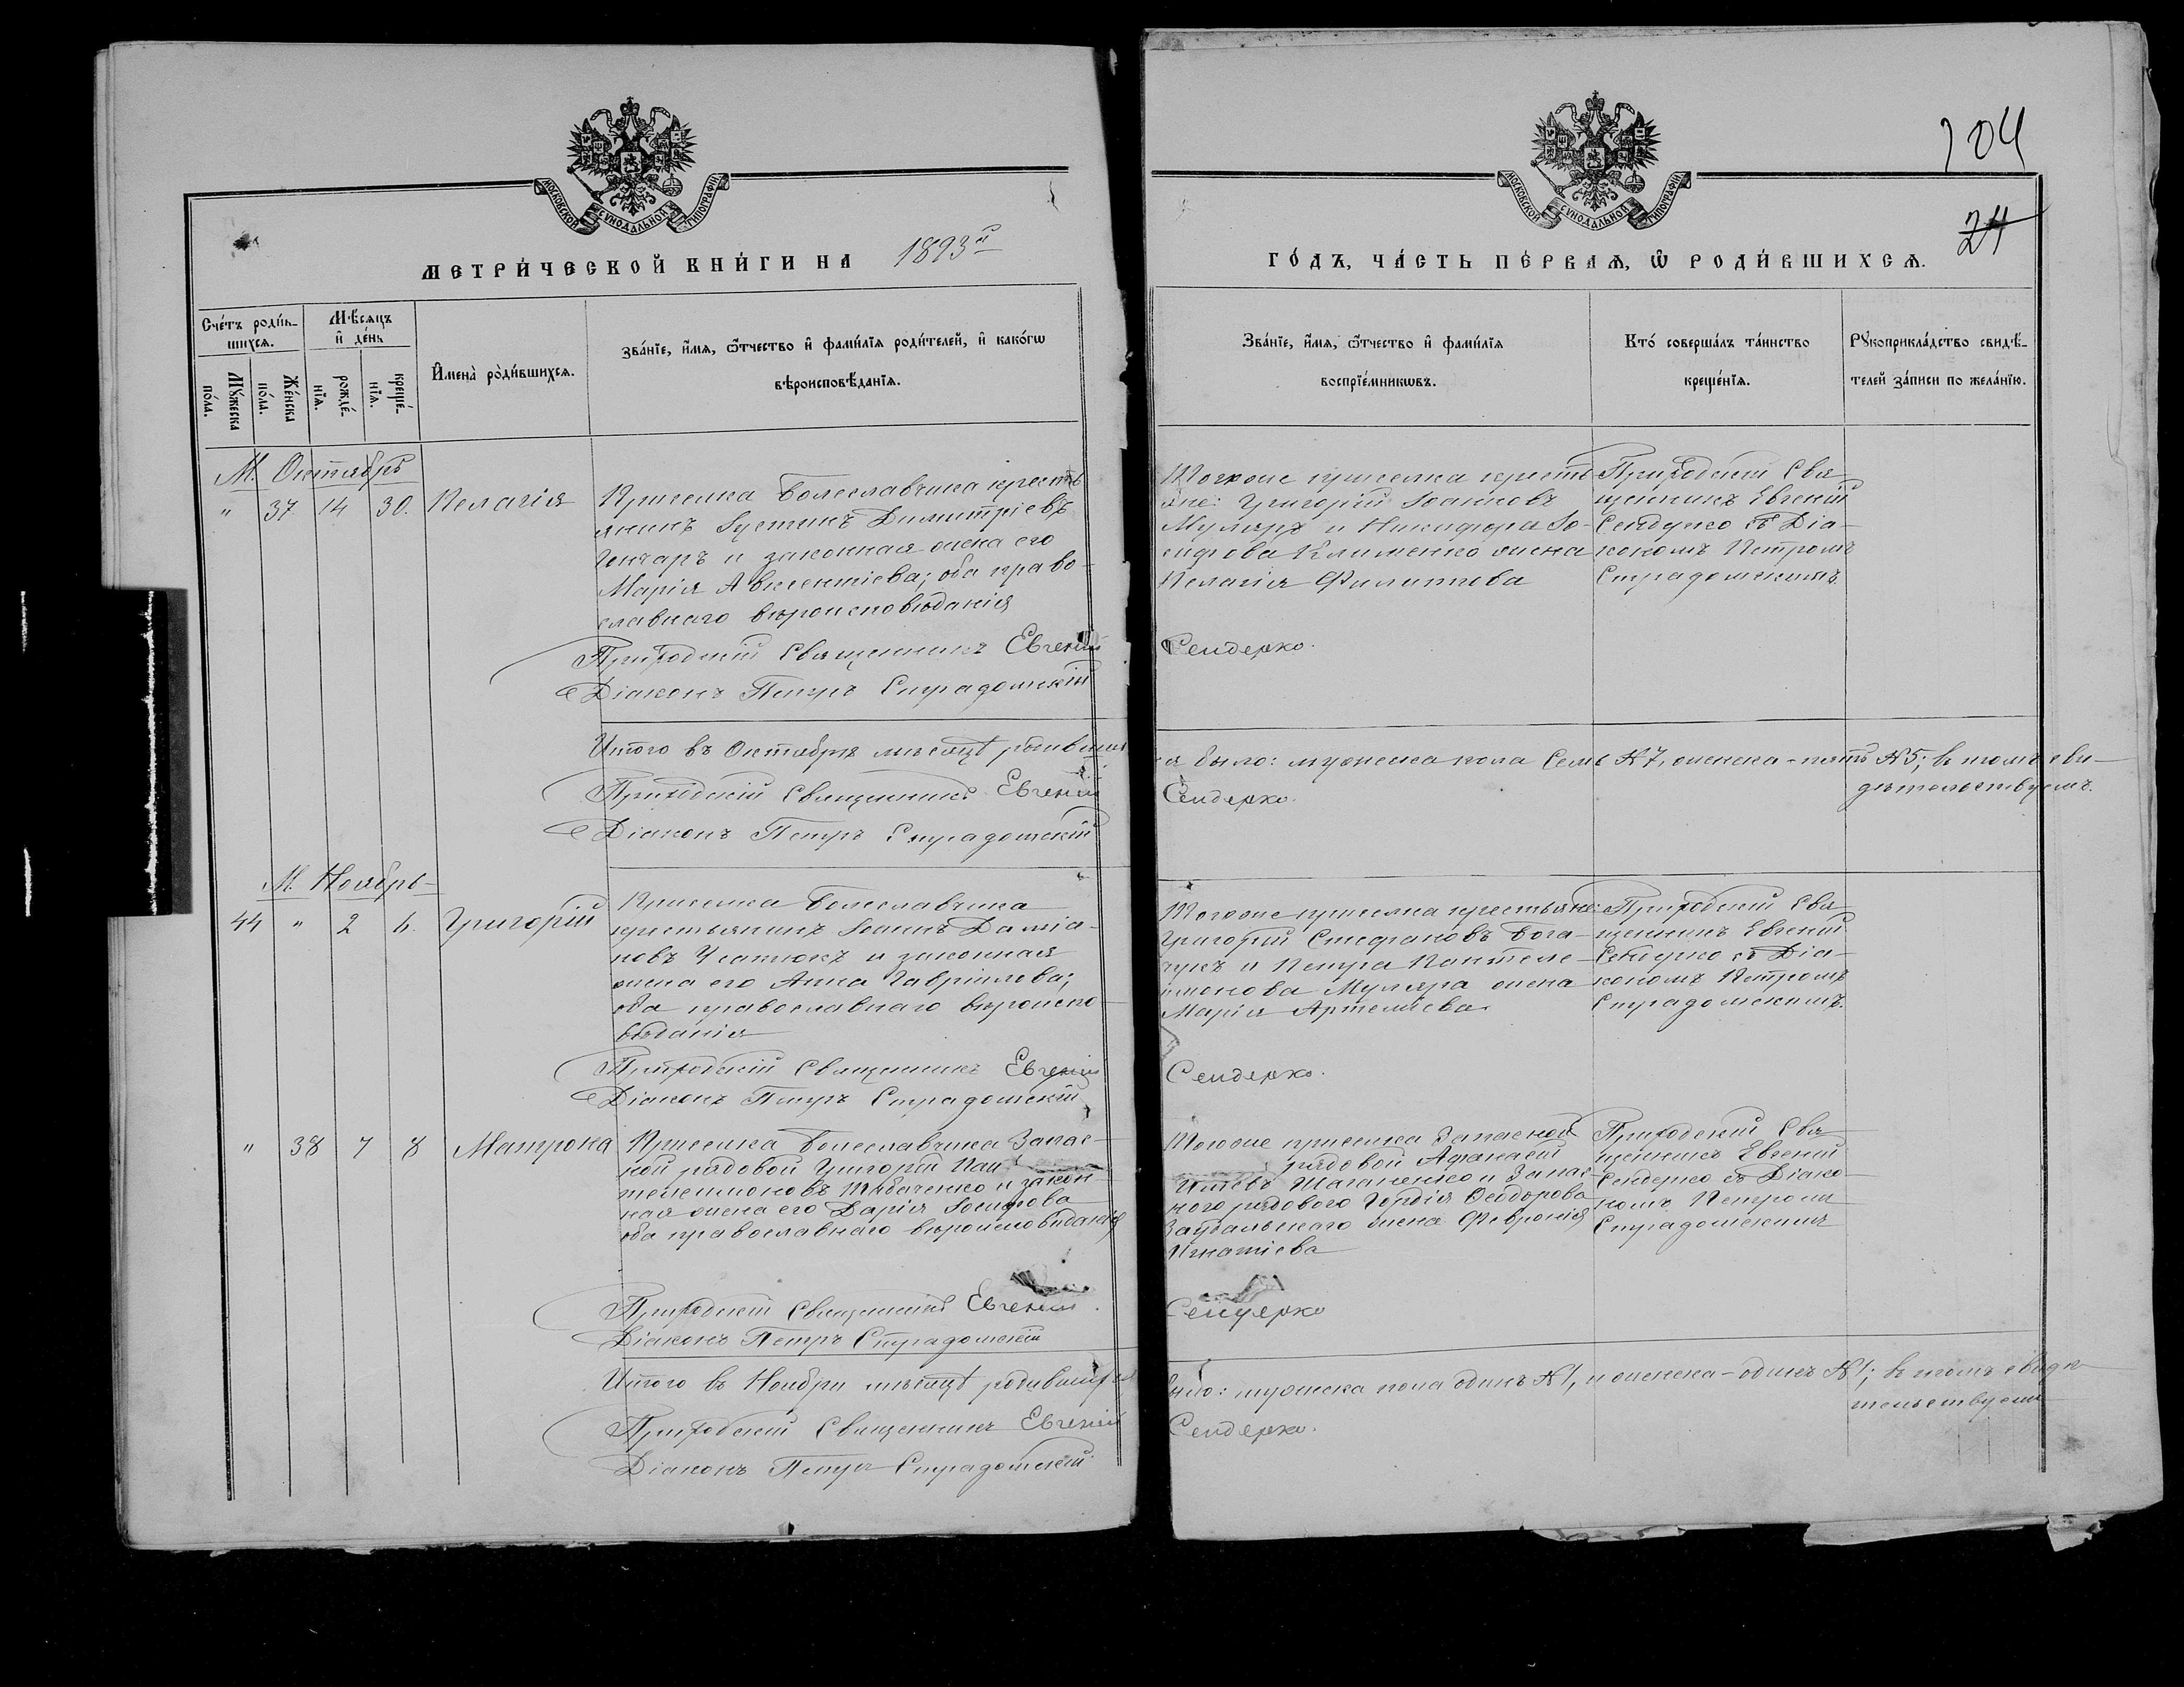 МОСКОВСКОЙ СѴНОДАЛЬНОЙ ТИПОГРАФІИ
МЕТРИ́ЧЕСКОЙ КНИ́ГИ НА 1893й
Сче́тъ роди́в-
шихсѧ.
Мꙋ́жеска
по́ла.
Же́нска
по́ла.
Мѣ́сѧцъ
и҆ де́нь
рожде́-
нїѧ.
креще́-
нїѧ.
И҆мена̀ роди́вшихсѧ.
Зва́нїе, и҆́мѧ, ѻ҆́тчество и҆ фами́лїѧ роди́телей, и҆ како́гѡ
вѣроисповѣ́данїѧ.
М. Октябрь
" 37 14 30. Пелагія
Приселка Болеславчика кресть
янинъ Іустинъ Димитріевъ
Гончаръ и законная жена его
Марія Авксентіева; оба право-
славнаго вѣроисповѣданія
Приходскій Священникъ Евгеній
Діаконъ Петръ Страдомскій
Итого въ Октябрѣ мѣсяцѣ родивших
Приходскій Священникъ Евгеній
Діаконъ Петръ Страдомскій
М. Ноябрь
44 " 2 6. Григорій
Приселка Болеславчика
крестьянинъ Іоаннъ Даміа-
новъ и законная
жена его Анна Гавріилова;
оба православнаго вѣроиспо-
вѣданія
Приходскій Священникъ Евгеній
Діаконъ Петръ Страдомскій
" 38 7 8 Матрона
Приселка Болеславчика Запас-
ной рядовой Григорій Пан-
телеимоновъ и закон-
ная жена его Дарія Іосифова
оба православнаго вѣроисповѣданія
Приходскій Священникъ Евгеній
Діаконъ Петръ Страдомскій
Итого въ Ноябрѣ мѣсяцѣ родившихся
Приходскій Священникъ Евгеній
Діаконъ Петръ Страдомскій
104
24
МОСКОВСКОЙ СѴНОДАЛЬНОЙ ТИПОГРАФІИ
ГО́ДЪ, ЧА́СТЬ ПЕ́РВАѦ, Ѡ҆ РОДИ́ВШИХСѦ.
Зва́нїе, и҆́мѧ, ѻ҆́тчество и҆ фами́лїѧ
воспрїе́мникѡвъ.
Кто́ соверша́лъ та́инство
креще́нїѧ.
Рꙋкоприкла́дство свидѣ́-
телей за́писи по жела́нїю.
Тогоже приселка кресть
яне: Григорій Іоанновъ
Муляръ и Никифора Іо-
сифова Клименко жена
Пелагія Филиппова
Приходскій Свя-
щенникъ Евгеній
Сендерко съ Діа-
кономъ Петромъ
Страдомскимъ.
Сендерко.
ся было: мужеска пола Семь №7, женска - пять №5; в томъ сви-
дѣтельствуемъ.
Сендерко.
Тогоже приселка крестьяне:
Григорій Стефановъ Бога-
чукъ и Петра Пантеле-
имонова Муляра жена
Марія Артеміева.
Приходскій Свя-
щенникъ Евгеній
Сендерко съ Діа-
кономъ Петромъ
Страдомскимъ.
Сендерко.
Тогоже приселка Запасной
рядовой Афанасій
и Запас-
ного рядового Гордія Ѳеодорова
жена Февронія
Игнатіева
Приходскій Свя-
щенникъ Евгеній
Сендерко съ Діако-
номъ Петромъ
Страдомскимъ
Сендерко
было: мужеска пола одинъ №1, и женска - одинъ №1; в томъ свидѣ-
тельствуемъ
Сендерко.